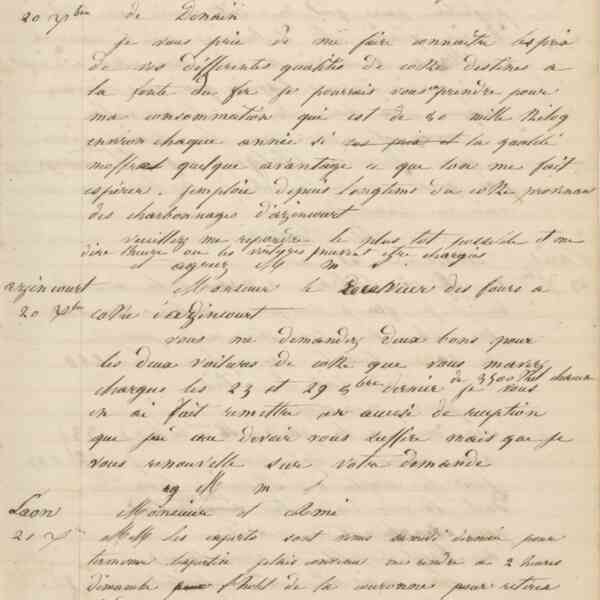 20 Xbre de Denain
je vous prie de me faire connaître les prix
de vos différentes qualités de coke destines a
la fonte du fer je pourrais vous prendre pour
ma consommation qui est de 20 mille Kilog
environ chaque année si ses prix et la qualité
moffrent quelque avantage ce que lon me fait
espérer. jemploie depuis longtems du coke provenan
des charbonnages d'azincourt
veuillez me repondre le plus tot possible et me
dire lheure ou les voitures peuvent etre chargés
et agreez M m
azincourt Monsieur le Receveur des fours a
20 Xbre coke d'azincourt
vous me demandez deux bons pour
les deux voitures de coke que vous mavez
chargus les 23 et 29 9bre dernier de 3500 Kil chacune je vous
en ai fait remettre un accusé de reception
que jai cru devoir vous suffire mais que je
vous renouvelle sur votre demande
ag M m
Laon Monsieur et ami
21 X MM les experts sont venus samedi dernier pour
terminer lexpertise jetais convenu me rendre a 2 heures
dimanche lhotel de la couronne pour retirer